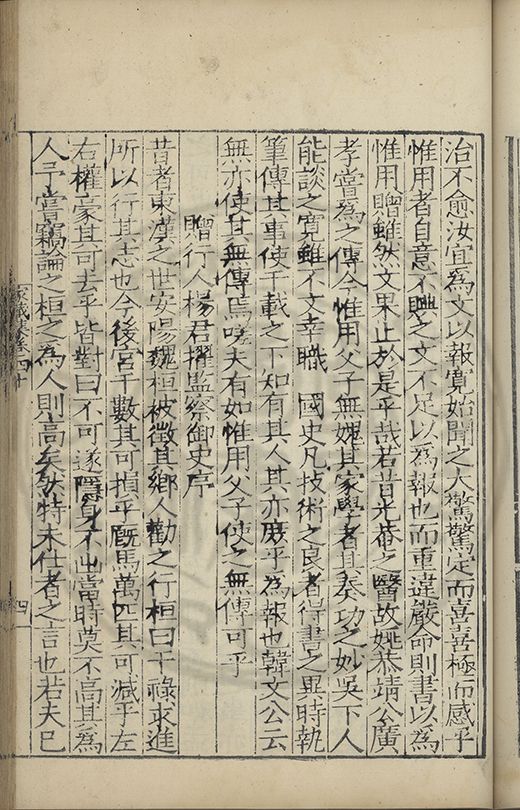 治不愈汝宜為文以報寬始聞之大驚驚定而喜喜極而感乎
惟用者自意不腆之文不足以為報也而重違嚴命則書以為
惟用贈雖然文果止於是乎哉若昔光菴之醫故姚恭靖公廣
孝嘗為之傳今惟用父子無媿其家學者且奏功之妙吳下人
能談之寬雖不文幸職　國史凡技術之良者得書之異時執
筆傳其事使千載之下知有其人其亦庶乎為報也韓文公云
無亦使其無傳焉嗟夫有如惟用父子使之無傳可乎
贈行人楊君擢監察御史序
昔者東漢之世安陽魏桓被徵其鄉人勸之行桓曰干祿求進
所以行其志也今後宮千數其可損乎厩馬萬匹其可減乎左
右權豪其可去乎皆對曰不可遂隱身不出當時莫不高其為
人予嘗竊論之桓之為人則高矣然特未仕者之言也若夫已
家藏集卷四十
四一